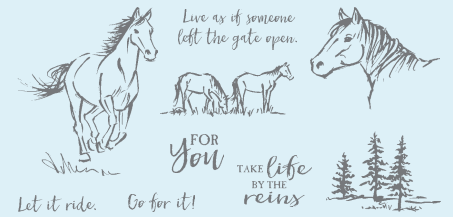 Live as if someone
left the gate open.
FOR
You
TAKE life
BY THE
reins
Let it ride.
Go for it!